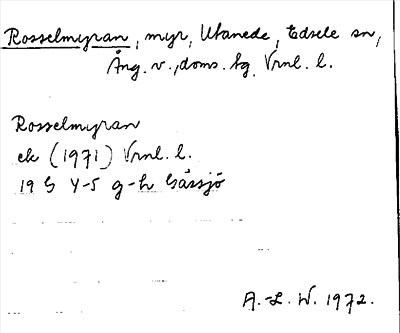 Rosselmyran, myr, Utanede, Edsele sn,
Ång. v., doms. hg. Vrnl. l.
Rosselmyran
ek (1971) Vrnl. l.
19 G Y-5 g-h Gåssjö
A.-L. W. 1972.